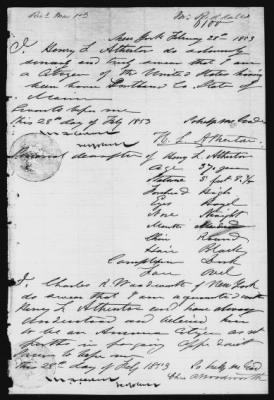 Rec'd Mar 1st
New York February 28th 1853
I Henry L Atherton do solemnly
swear and truly swear that I am
a Citizen of the United States having
been born Portland So State of
Maine
Sworn to before me So help me God
this 28th day of Feby 1853
H. L. Atherton
Personal description of Henry L Atherton
Age 37 years
Stature 5 feet 8 3/4
Forehead High
Eyes Hazel
Nose Straight
Mouth
Chin Round
Hair Black
Complexion Dark
Face Oval
I, Charles R Wadsworth of New York
do swear that I am acquainted with
Henry L Atherton and have always
understood and believe him
to be an American Citizen as set
forth in forgoing affidavit
Sworn to before me
this 28th day of Feby 1853 So help me God